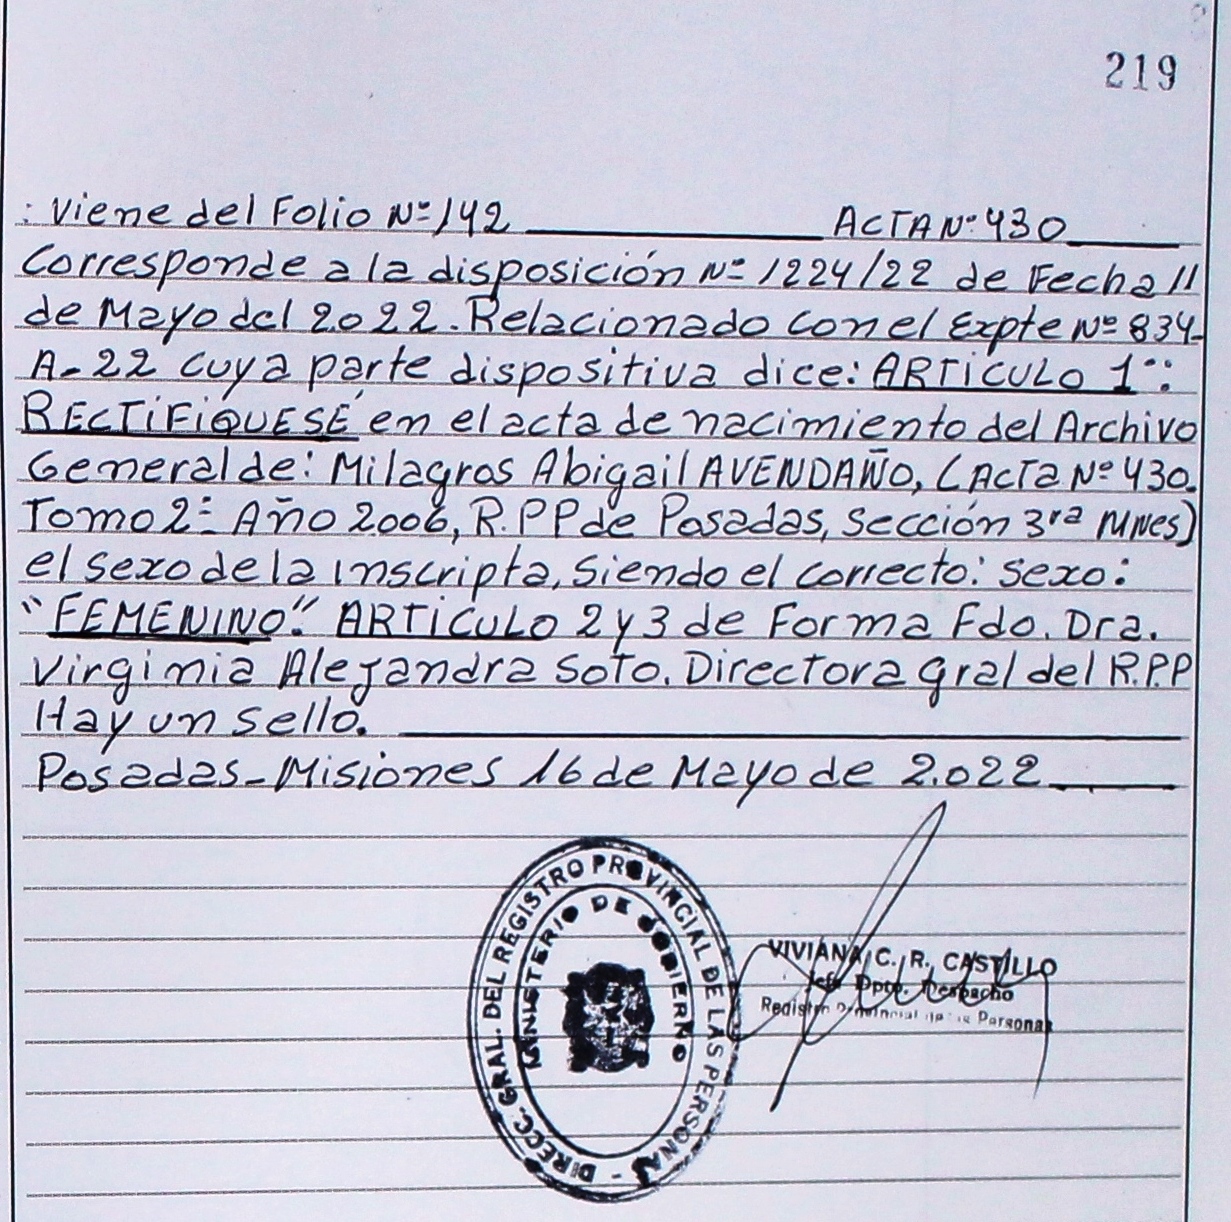 219
: Viene del Folio Nº 142 ACTA Nº 430
Corresponde a la disposición Nº 1224/22 de Fecha 11
de Mayo del 2.022. Relacionado con el Expte Nº 834-
A-22 cuya parte dispositiva dice: ARTICULO 1º:
RECTIFIQUESÉ en el acta de nacimiento del Archivo
General de: Milagros Abigail AVENDAÑO, (Acta Nº 430.
Tomo 2º Año 2.006, R.P.P de Posadas, Sección 3ra Mnes)
el sexo de la inscripta, siendo el correcto: sexo:
"FEMENINO". ARTICULO 2 y 3 de Forma Fdo. Dra.
Virginia Alejandra Soto. Directora Gral del R.P.P
Hay un sello.
Posadas-Misiones 16 de Mayo de 2.022
DIRECC. GRAL. DEL REGISTRO PROVINCIAL DE LAS PERSONAS -
MINISTERIO DE GOBIERNO
VIVIANA C. R. CASTILLO
Jefe Dpto. Despacho
Registro Provincial de las Personas